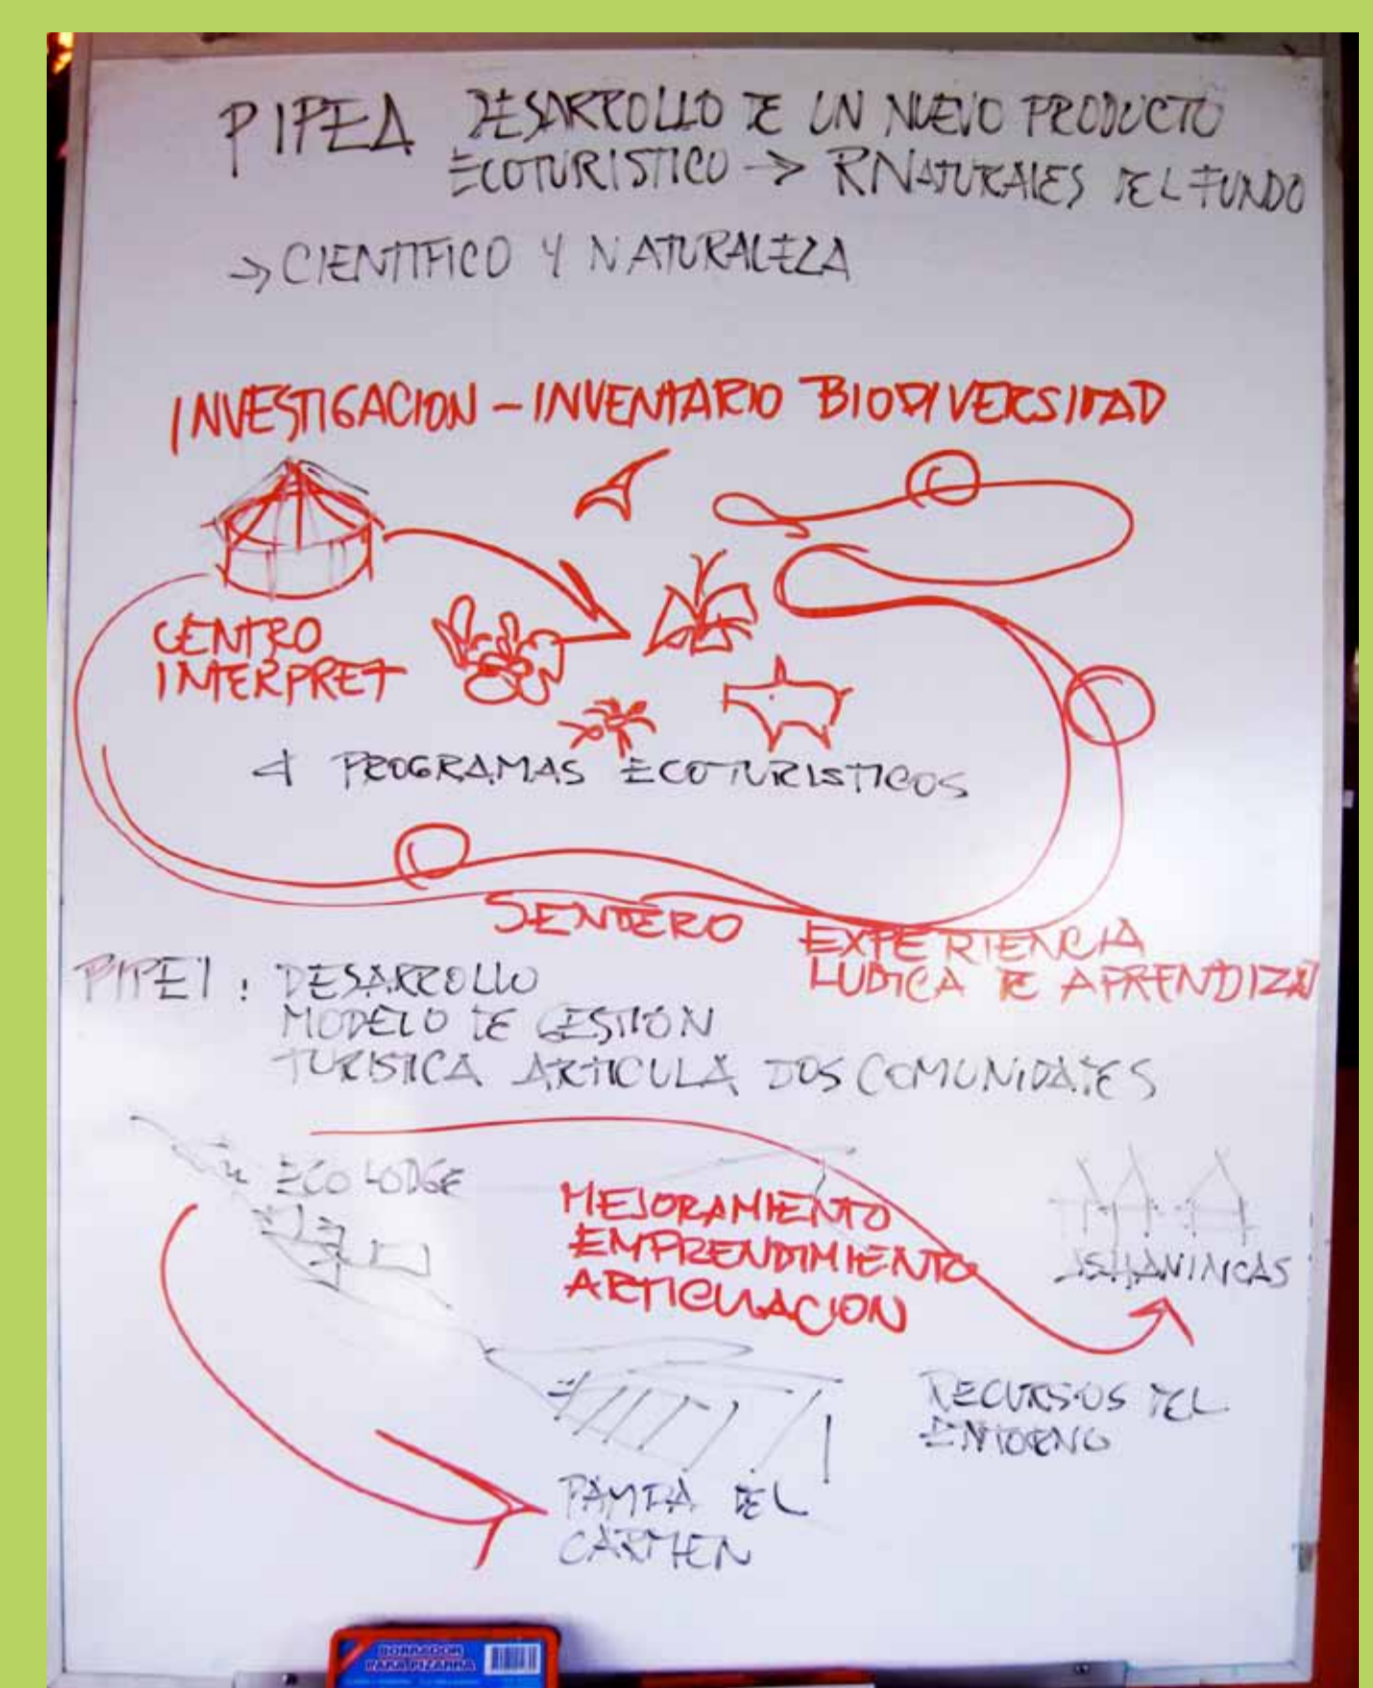 PIPEA DESARROLLO DE UN NUEVO PRODUCTO
ECOTURISTICO -> RNATURALES DEL FUNDO
-> CIENTIFICO Y NATURALEZA
INVESTIGACION - INVENTARIO BIODIVERSIDAD
CENTRO
INTERPRET
4 PROGRAMAS ECOTURISTICOS
SENDERO
EXPERIENCIA
LUDICA DE APRENDIZAJ
PIPEI : DESARROLLO
MODELO DE GESTION
TURISTICA ARTICULA DOS COMUNIDADES
ECO LODGE
MEJORAMIENTO
EMPRENDIMIENTO
ARTICULACION
ASHANINCAS
RECURSOS DEL
ENTORNO
PAMPA DEL
CARMEN
BORRADOR
PARA PIZARRA